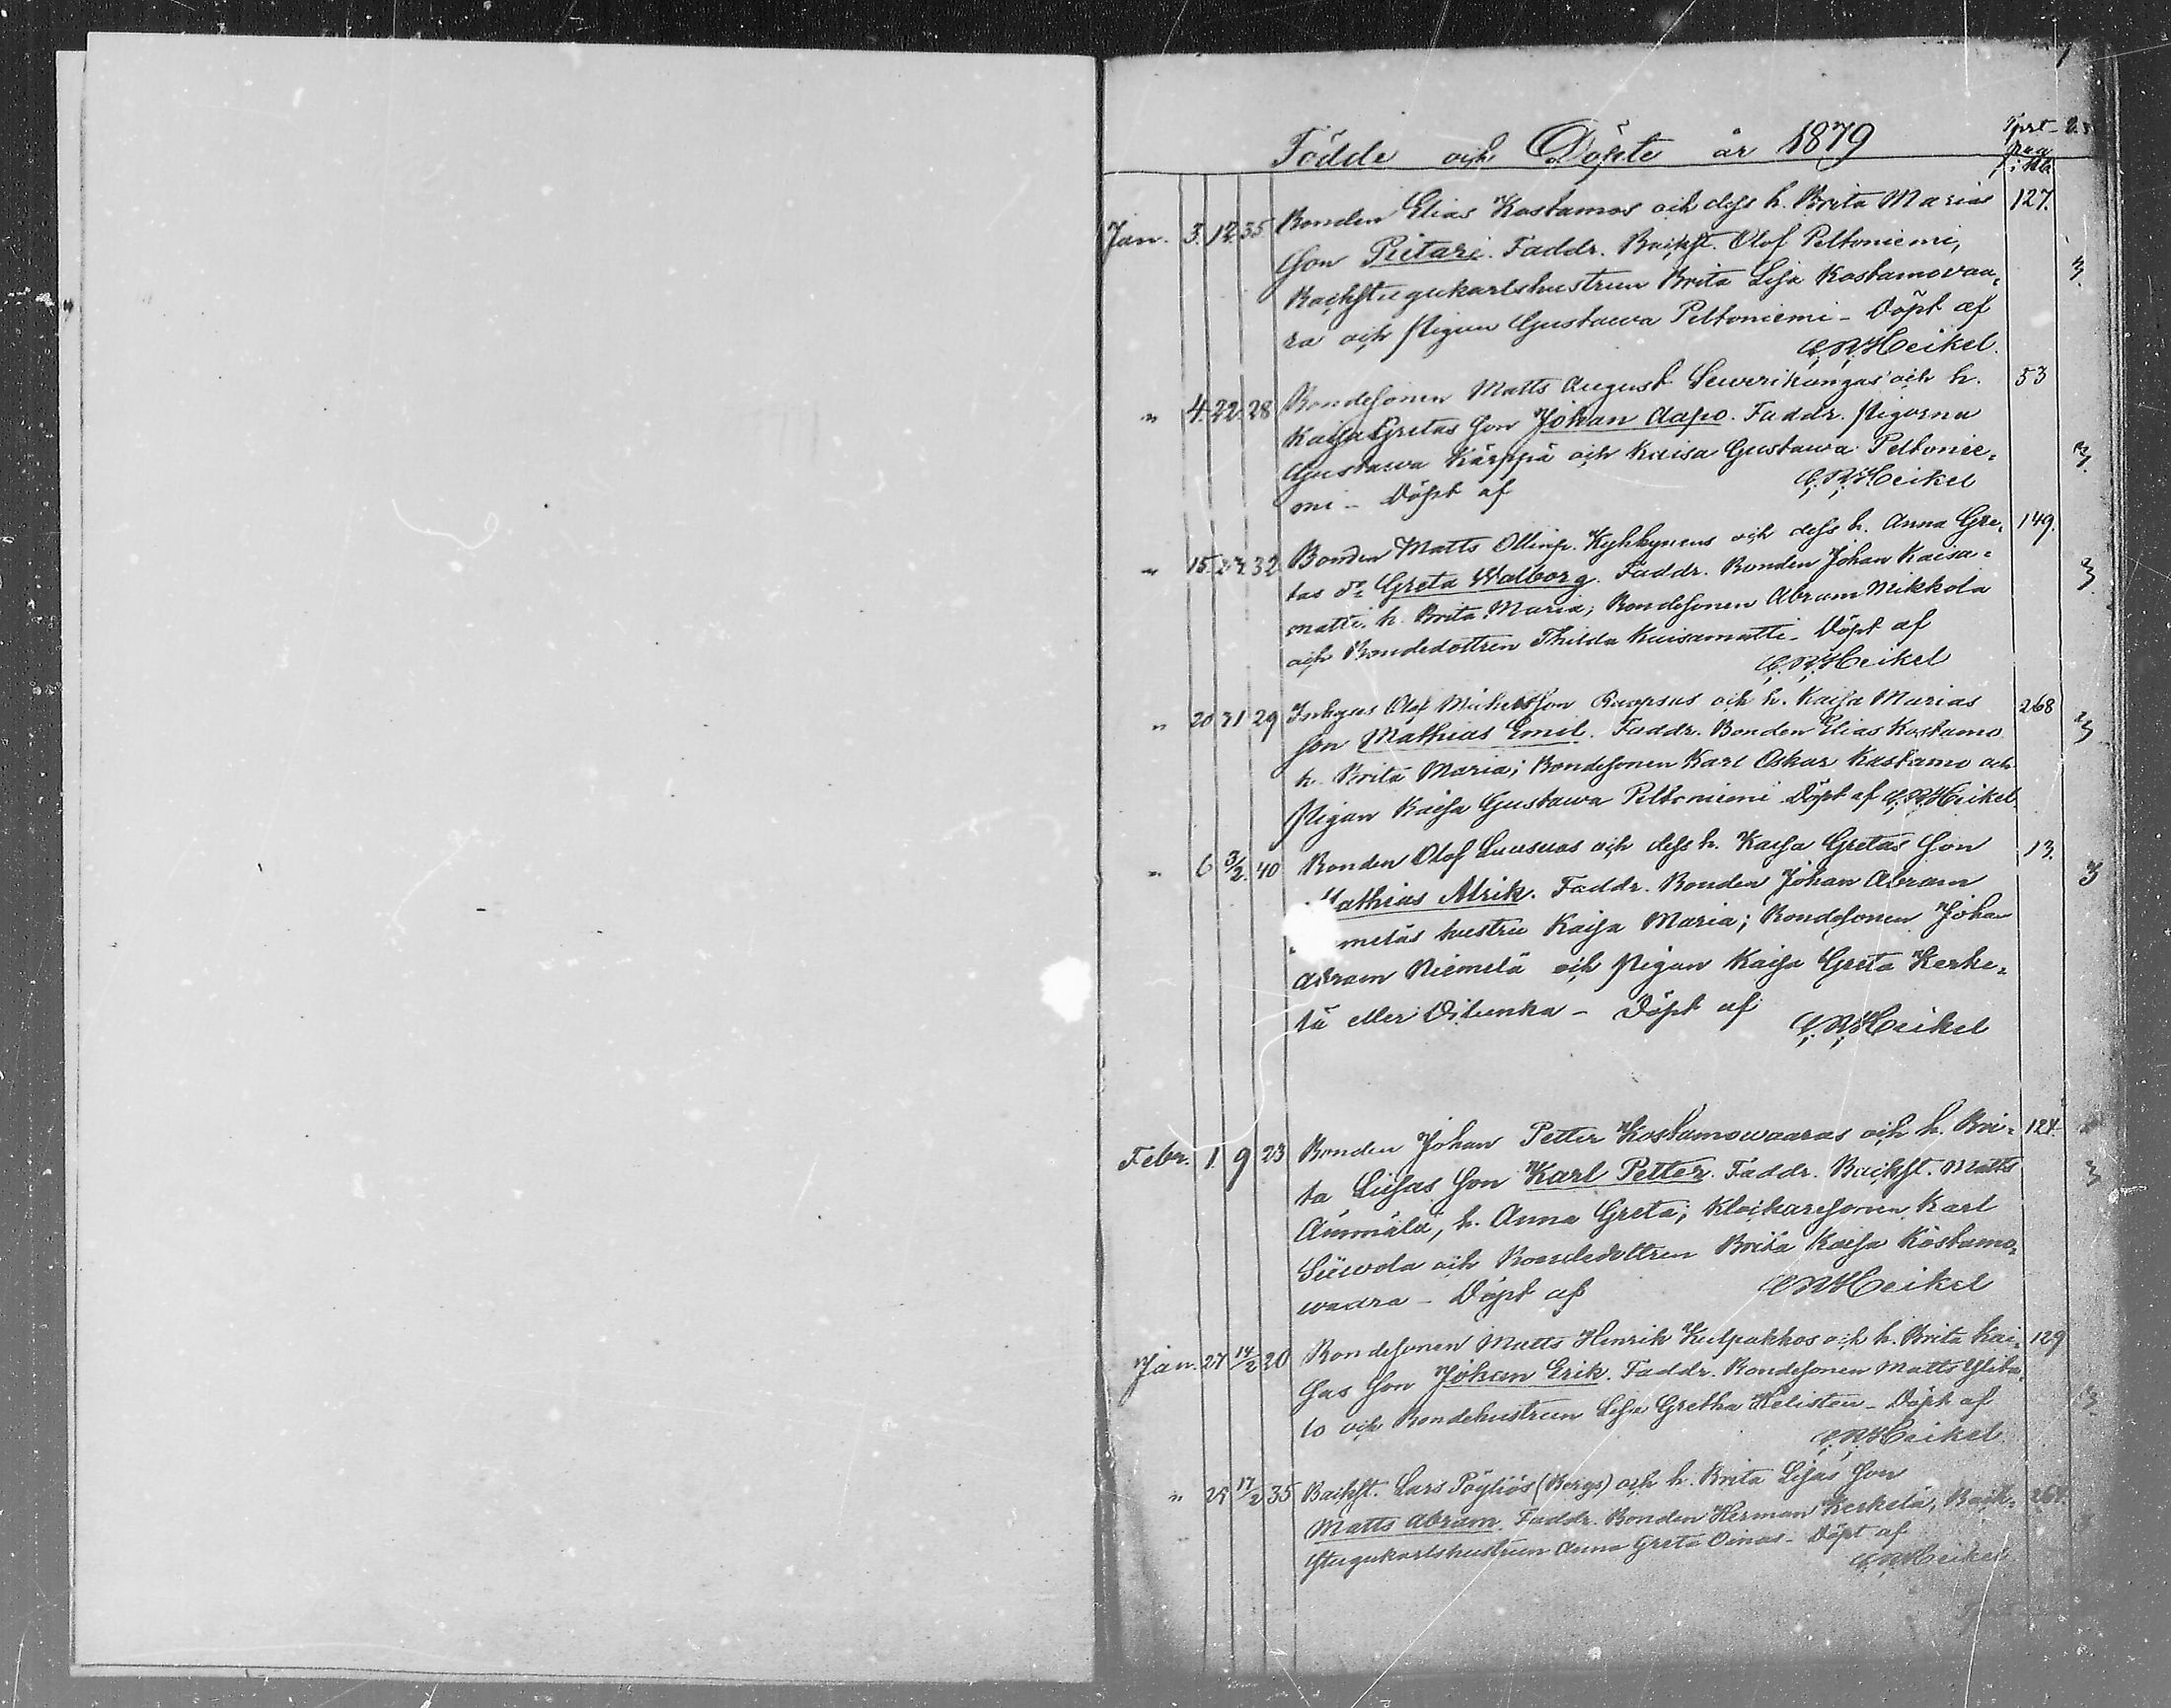 1
Födde och Döpte år 1879
Jan. 3. 12. 35 Bonden Elias Kostamos och dess h. Brita Marias 127.
Son Pietari. Faddr. Backst. Olof Peltoniemi, 3.
Backstugukarlshustrun Brita Lisa Kostamovaa,
ra och Pigan Gustawa Peltoniemi – Döpt af
C. R. Heikel.
" 4. 22. 28 Bondesonen Matts August Suvrikangas och h. 53
Kaisa Gretas Son Johan Aapo. Faddr. Pigorna
Gustawa Kärppä och Kaisa Gustawa Peltonie, 3.
mi – Döpt af C. R. Heikel
" 15. 27. 32. Bonden Matts Kyhkynens och dess h. Anna Gre, 149.
tas dr Greta Walborg. Faddr. Bonden Johan Kaisa- 3
matti, h. Brita Maria; Bondesonen Abram Mikkola
och Bondedottren Thilda Kaisamatti – Döpt af
C. R. Heikel
" 20 31 29 Inhyses Olof Michelsson Ruopsas och h. Kaisa Marias 268
Son Mathias Emil. Faddr. Bonden Elias Kostamo 3
h. Brita Maria; Bondesonen Karl Oskar Kostamo och
Pigan Kaisa Gustawa Peltoniemi Döpt af C. R. Heikel.
" 6 3/2. 40 Bonden Olof Luusuas och dess h. Kaisa Gretas Son 13.
Mathias Alrik. Faddr. Bonden Johan Abram 3
meläs hustru Kaisa Maria; Bondesonen Johan
Abram Niemelä och Pigan Kaisa Greta Kerke,
lä eller Oilunka – Döpt af C. R. Heikel
Febr. 1. 9 23 Bonden Johan Petter Kostamowaaras och h. Bri- 124.
ta Lisas Son Karl Petter. Faddr. Backst. Matts 3
Ämmälä, h. Anna Greta; Klockaresonen Karl
Siiwola och Bondedottren Brita Kaisa Kostamo,
waara – Döpt af C R Heikel
Jan. 27 14/2 20 Bondesonen Matts Henrik Kulpakkos och h. Brita Kai, 129
sas Son Johan Erik. Faddr. Bondesonen Matts Ylita,
lo och Bondehustrun Lisa Gretha Helisten – Döpt af 3.
C. R. Heikel.
" 25 17/2 35 Backst. Lars Pöyliös (Bergs) och h. Brita Lisas Son
Matts Abram. Faddr. Bonden Herman Kerkelä, Back, 264.
stugukarlshustrun Anna Greta Oinas – Döpt af
C. R. Heikel